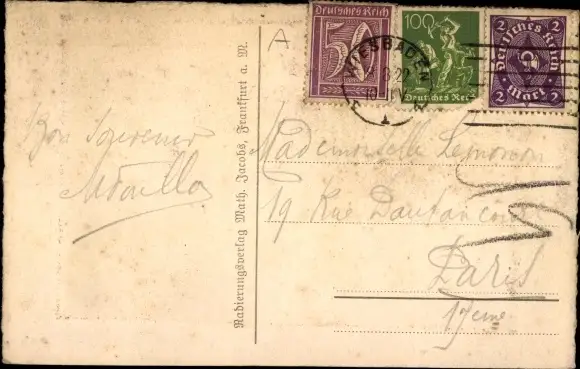 A
Deutsches Reich
5
100
Deutsches Reich
2 2
Deutsches Reich
2 Mark 2
WIESBADEN
Bon Souvenir
Radierungsverlag Math. Jacobs, Frankfurt a. M.
Mademoiselle
19 Rue Dautancourt
Paris
17eme